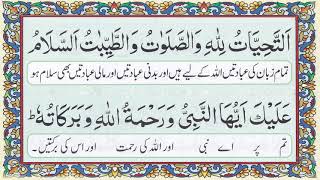 اَلتَّحِيَّاتُ لِلّٰهِ وَالصَّلَوٰتُ وَالطَّيِّبٰتُ اَلسَّلَامُ
تمام زبان کی عبادتیں اللہ کے لیے ہیں اور بدنی عبادتیں اور مالی عبادتیں بھی سلام ہو
عَلَيْكَ اَيُّهَا النَّبِيُّ وَرَحْمَةُ اللّٰهِ وَبَرَكَاتُهٗ ط
تم پر اے نبی اور اللہ کی رحمت اور اس کی برکتیں۔